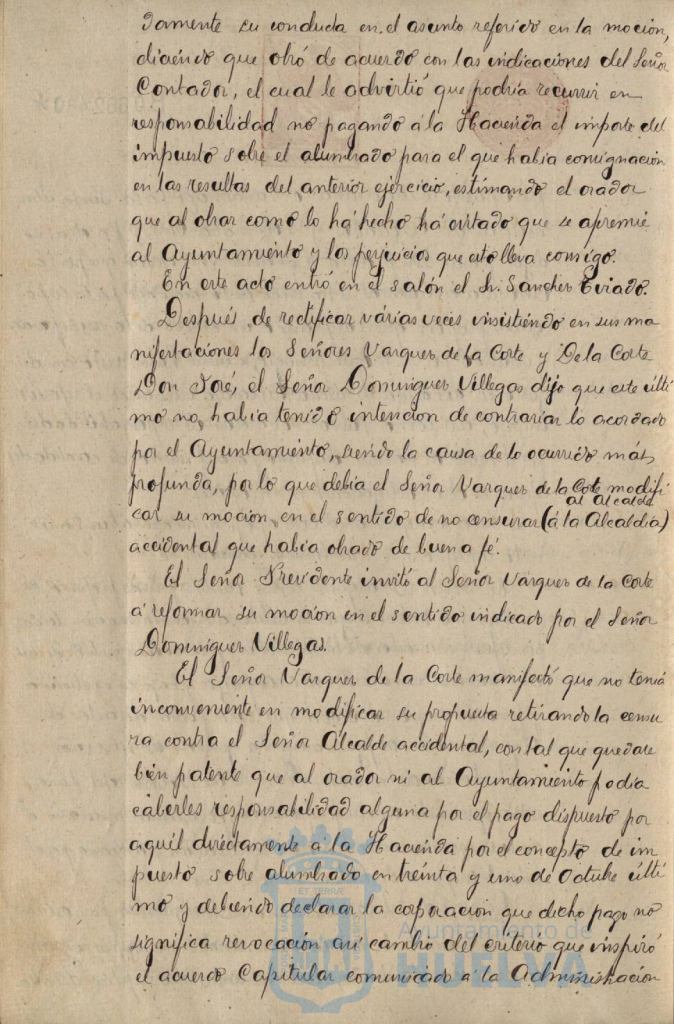 damente su conducta en el asunto referido en la moción,
diciendo que obró de acuerdo con las indicaciones del Señor
Contador, el cual le advirtió que podria recurrir en
responsabilidad no pagando á la Hacienda el importe del
impuesto sobre el alumbrado para el que habia consignacion
en las resultas del anterior ejercicio, estimando el orador
que al obrar como lo há hecho há evitado que se apremie
al Ayuntamiento y los perjuicios que esto lleva consigo.
En este acto entró en el salón el Sr. Sanchez Tirado.
Después de rectificar várias veces insistiendo en sus ma
nifestaciones los Señores Vazquez de la Corte y De la Corte
Don José, el Señor Dominguez Villegas dijo que este últi
mo no habia tenido intencion de contrariar lo acordado
por el Ayuntamiento, siendo la causa de lo ocurrido más
profunda, por lo que debia el Señor Vazquez de la Corte modifi
al Alcalde
car su moción en el sentido de no censurar (á la Alcaldia)
accidental que habia obrado de buena fé.
El Señor Presidente invitó al Señor Vazquez de la Corte
á reformar su mocion en el sentido indicado por el Señor
Dominguez Villegas.
El Señor Vazquez de la Corte manifestó que no tenia
inconveniente en modificar su propuesta retirando la censu
ra contra el Señor Alcalde accidental, con tal que quedase
bien patente que al orador ni al Ayuntamiento podia
caberles responsabilidad alguna por el pago dispuesto por
aquél diréctamente á la Hacienda por el concepto de im
puesto sobre alumbrado en treinta y uno de Octubre últi
mo y debiendo declarar la corporacion que dicho pago no
significa revocación ni cambio del criterio que inspiró
el acuerdo Capitular comunicado á la Administracion
Ayuntamiento de
HUELVA